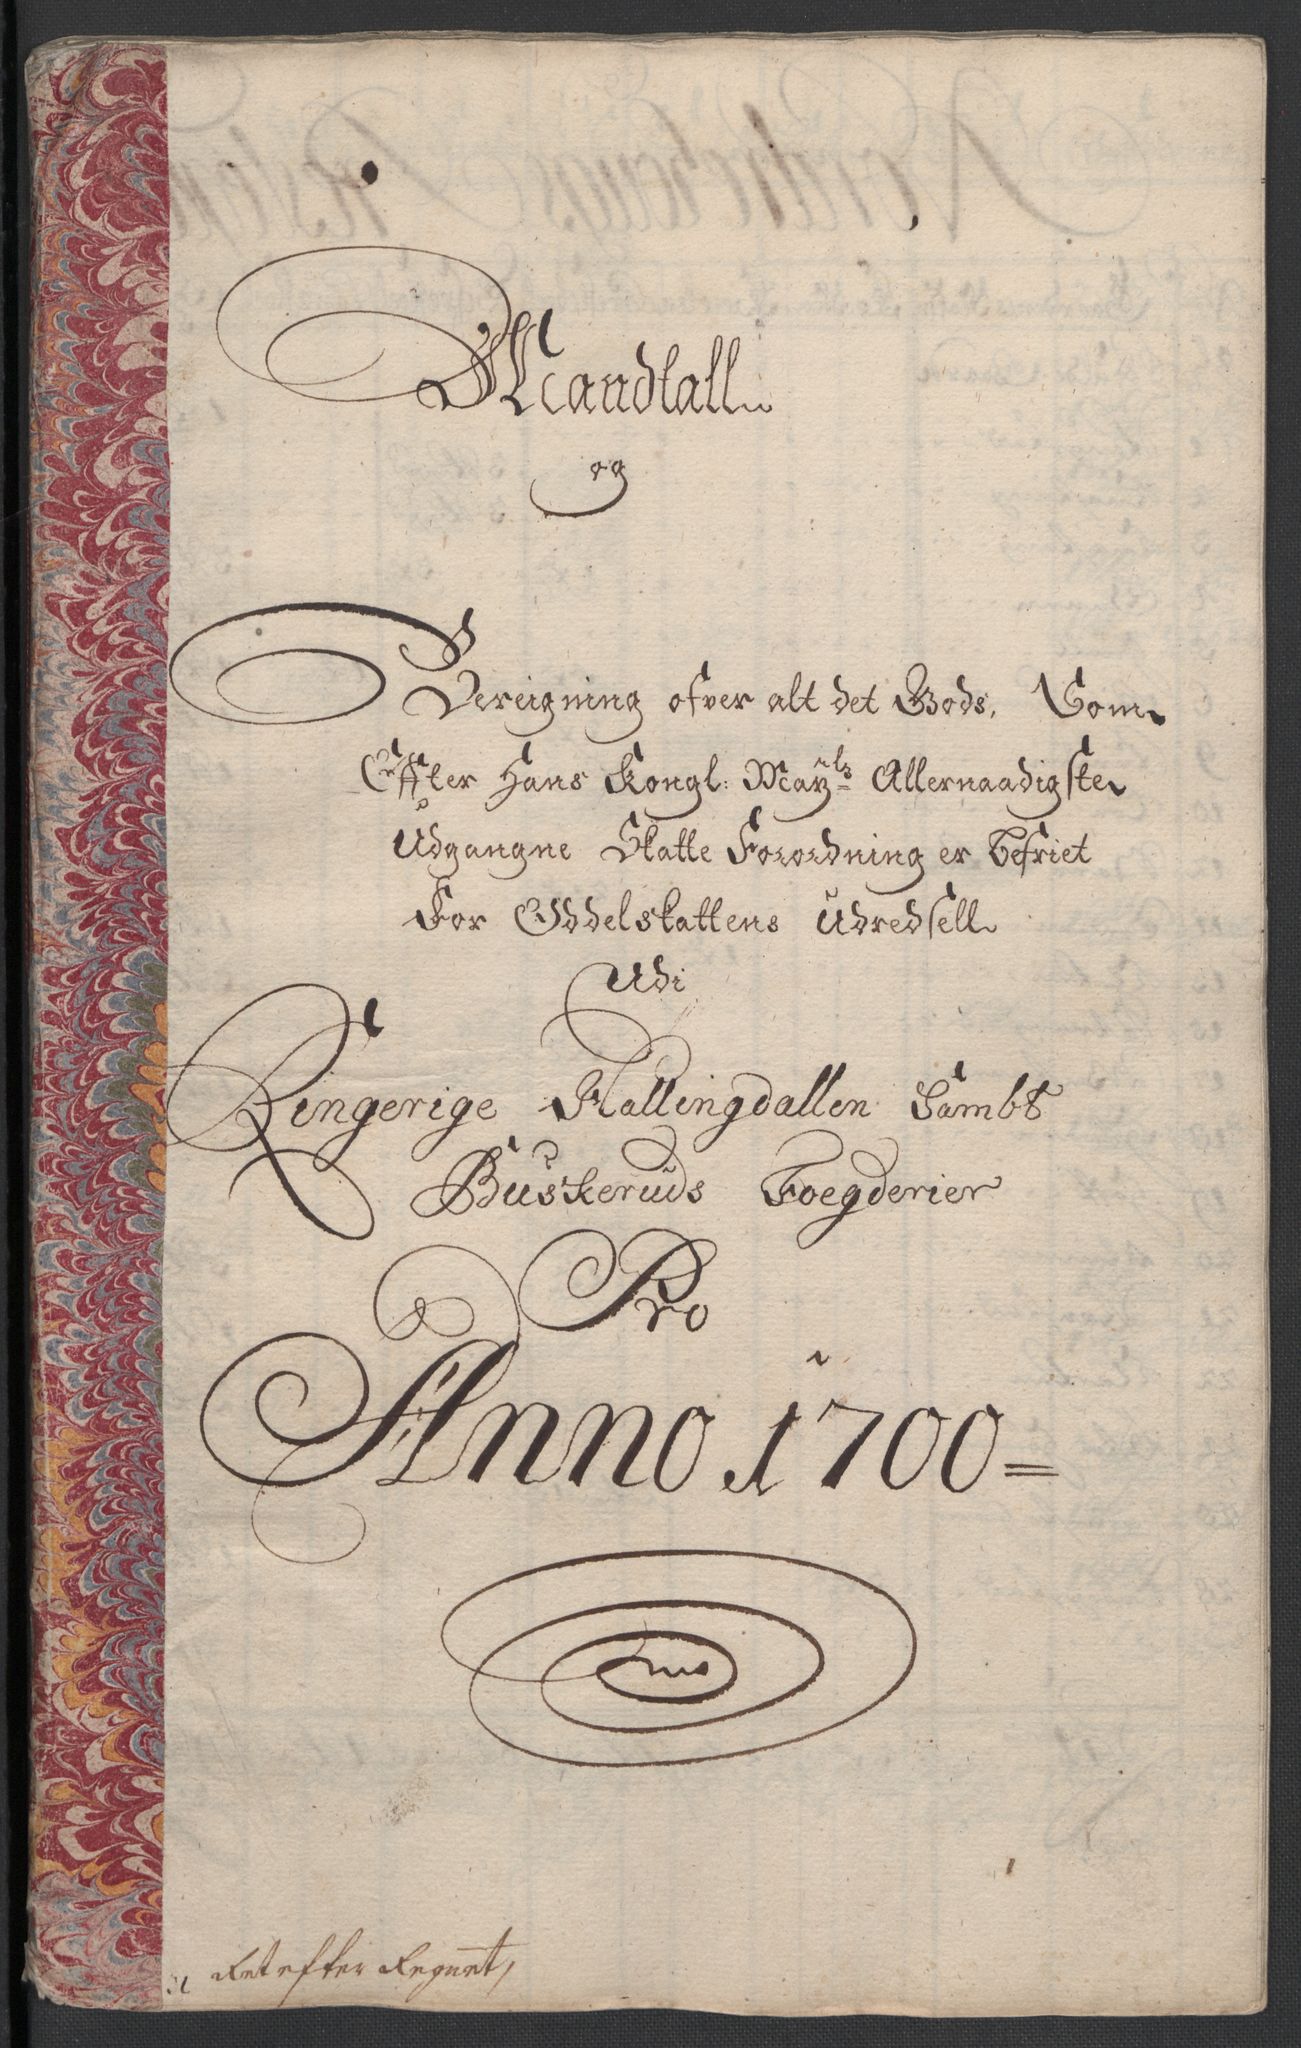 Mandtall
og
Bereigning ofver alt det Gods, Som
Effter Hans Kongl: Mayts Allernaadigste
Udgangne Skatte Forordning er befriet
For Oddelskattens Udredsell
Udi
Ringerige Hallingdallen Sambt
Buskeruds Foegderier
Pro
Anno 1700=
Ret efter Regnet,